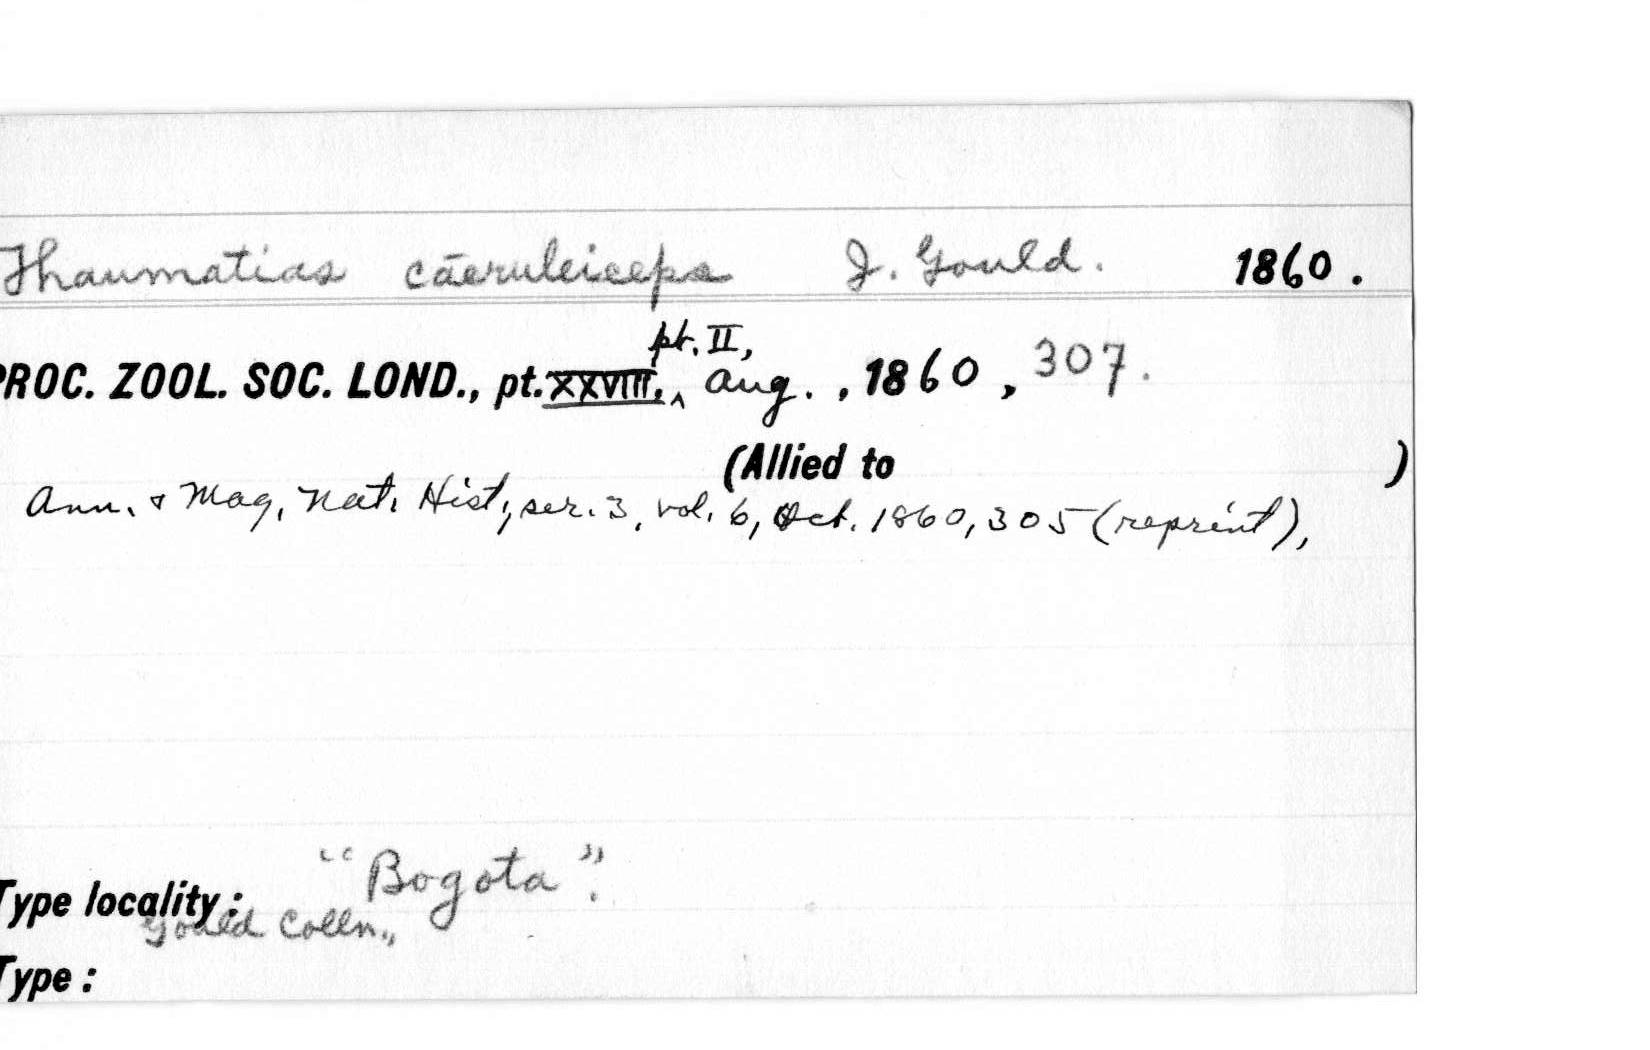 Thaumatias cāeruleiceps J. Gould. 1860.
PROC. ZOOL. SOC. LOND., pt. XXVIII. ‸ pt. II, Aug. , 1860 , 307.
(Allied to )
Ann. & Mag. Nat. Hist., ser. 3, vol. 6, Oct. 1860, 305 (reprint),
Type locality: "Bogota".
Gould Colln.,
Type: